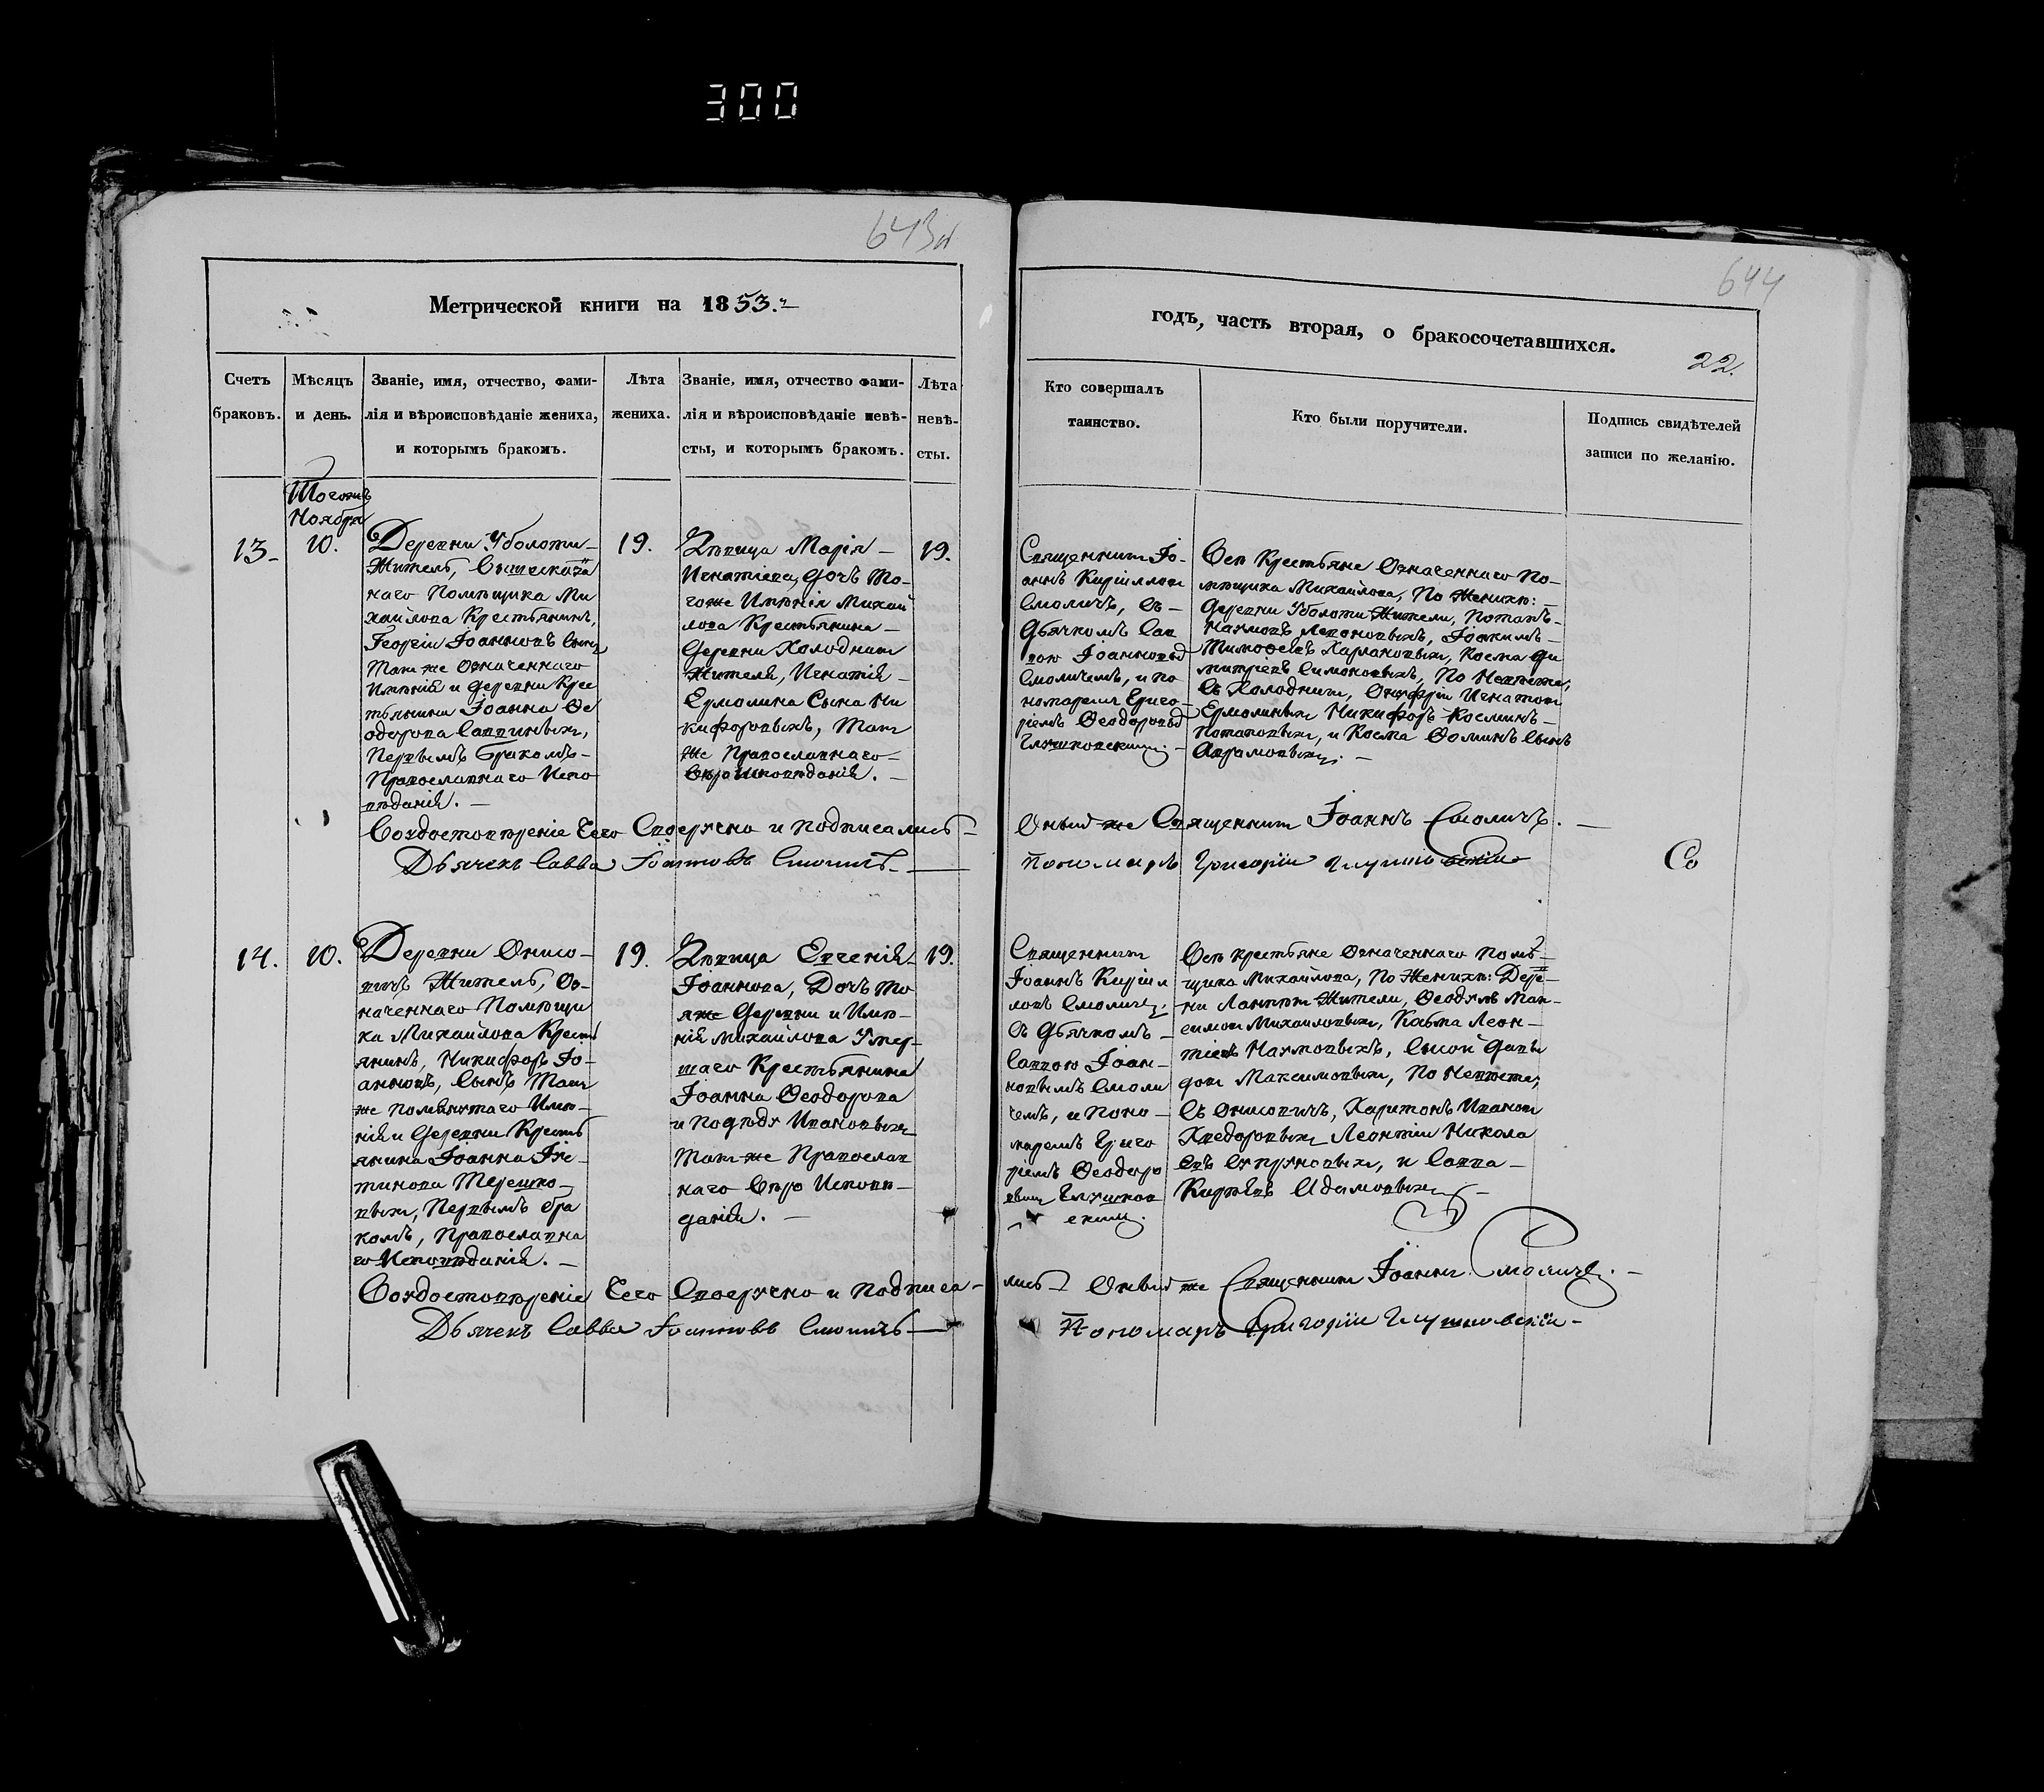 300
643 об
644
Метрической книги на 1853.
годъ, часть вторая, о бракосочетавшихся.
22.
Счетъ браковъ.
Мѣсяцъ и день.
Званіе, имя, отчество, фами-
лія и вѣроисповѣданіе жениха,
и которымъ бракомъ.
Лѣта
жениха.
Званіе, имя, отчество фами-
лія и вѣроисповѣданіе невѣ-
сты, и которымъ бракомъ.
Лѣта
невѣ-
сты.
Кто совершалъ
таинство.
Кто были поручители.
Подпись свидѣтелей
записи по желанію.
Тогожъ
Ноября
13.
10.
Деревни Уболоти
Житель,
наго Помѣщика Ми
хайлова Крестьянинъ,
Георгій Іоанновъ Сынъ
Такъ же Означеннаго
Имѣнія и деревни Крес
тьянина Іоанна Ѳе
одорова Саввиныхъ,
Первымъ бракомъ
Православнаго Испо
вѣданія.
19.
Дѣвица Марія
Игнатіева, дочь То-
гоже Имѣнія Михай
лова Крестьянина
деревни Холодникъ
Жителя, Игнатія
Ермолина Сына Ни
кифоровыхъ, Такъ
же Православнаго
Вѣроисповѣданія.
19.
Священникъ Іо-
аннъ Кирилловъ
Смоличъ, съ
дьячкомъ Сав
вою Іоанновы
Смоличемъ, и по
номаремъ Григо
ріемъ Ѳеодоровы
Глушковскимъ.
Всѣ Крестьяне Означеннаго По-
мѣщика Михайлова, По Женихѣ:
деревни Уболоти Жители, Потапъ
Наумовъ Леоновыхъ, Іоакимъ
Тимофеевъ Харлановыхъ, Косма Ди
митріевъ Симоновыхъ, По Невѣстѣ,
Съ Холодникъ, Онуфрій Игнатовъ
Ермолиныхъ Никифоръ Косминъ
Потаповыхъ, и Косма Ѳоминъ Сынъ
Аврамовыхъ.
Воудостовѣреніе Чего Своеручно и подписались
Оный же Священникъ Іоаннъ Смоличъ.
Дьячекъ Савва Іоанновъ Смоличъ
Пономарь Григорій Глушковскій
Со
14.
10.
Деревни Онисо-
вичъ Житель, Оз-
наченнаго Помѣщи
ка Михайлова Кресть
янинъ, Никифоръ Іо-
анновъ, Сынъ Такъ
же помянутаго Имѣ-
нія и деревни Кресть
янина Іоанна Іус-
тинова Терешко-
выхъ, Первымъ бра
комъ, Православна
го Исповѣданія.
19.
Дѣвица Евгенія
Іоаннова, Дочь То
яже деревни и Имѣ-
нія Михайлова Умер-
шаго Крестьянина
Іоанна Ѳеодорова
Ивановыхъ
Такъ же Православ
наго Вѣро Исповѣ-
данія.
19.
Священникъ
Іоаннъ Кирил
ловъ Смоличъ,
съ дьячкомъ
Саввою Іоан-
новымъ Смоли
чемъ, и Поно-
маремъ Григо
ріемъ Ѳеодоро
вымъ Глушков
скимъ.
Всѣ крестьяне Означеннаго Помѣ-
щика Михайлова, По Женихѣ: Дерев-
ни Жители, Ѳеодулъ Мак-
симовъ Михаиловыхъ, Косма Леон-
тіевъ Наумовыхъ, Сысой Давы
довъ Максимовыхъ, По Невѣстѣ,
Съ Онисовичъ, Харитонъ Ивановъ
Хведоровыхъ Леонтій Никола
евъ Супруновыхъ, и Савва
Кирѣевъ Адамовыхъ
Воудостовѣреніе Чего Своеручно и подписа-
лись Оный же Священникъ Іоаннъ Смоличъ.
Дьячекъ Савва Іоанновъ Смоличъ
Пономарь Григорій Глушковскій